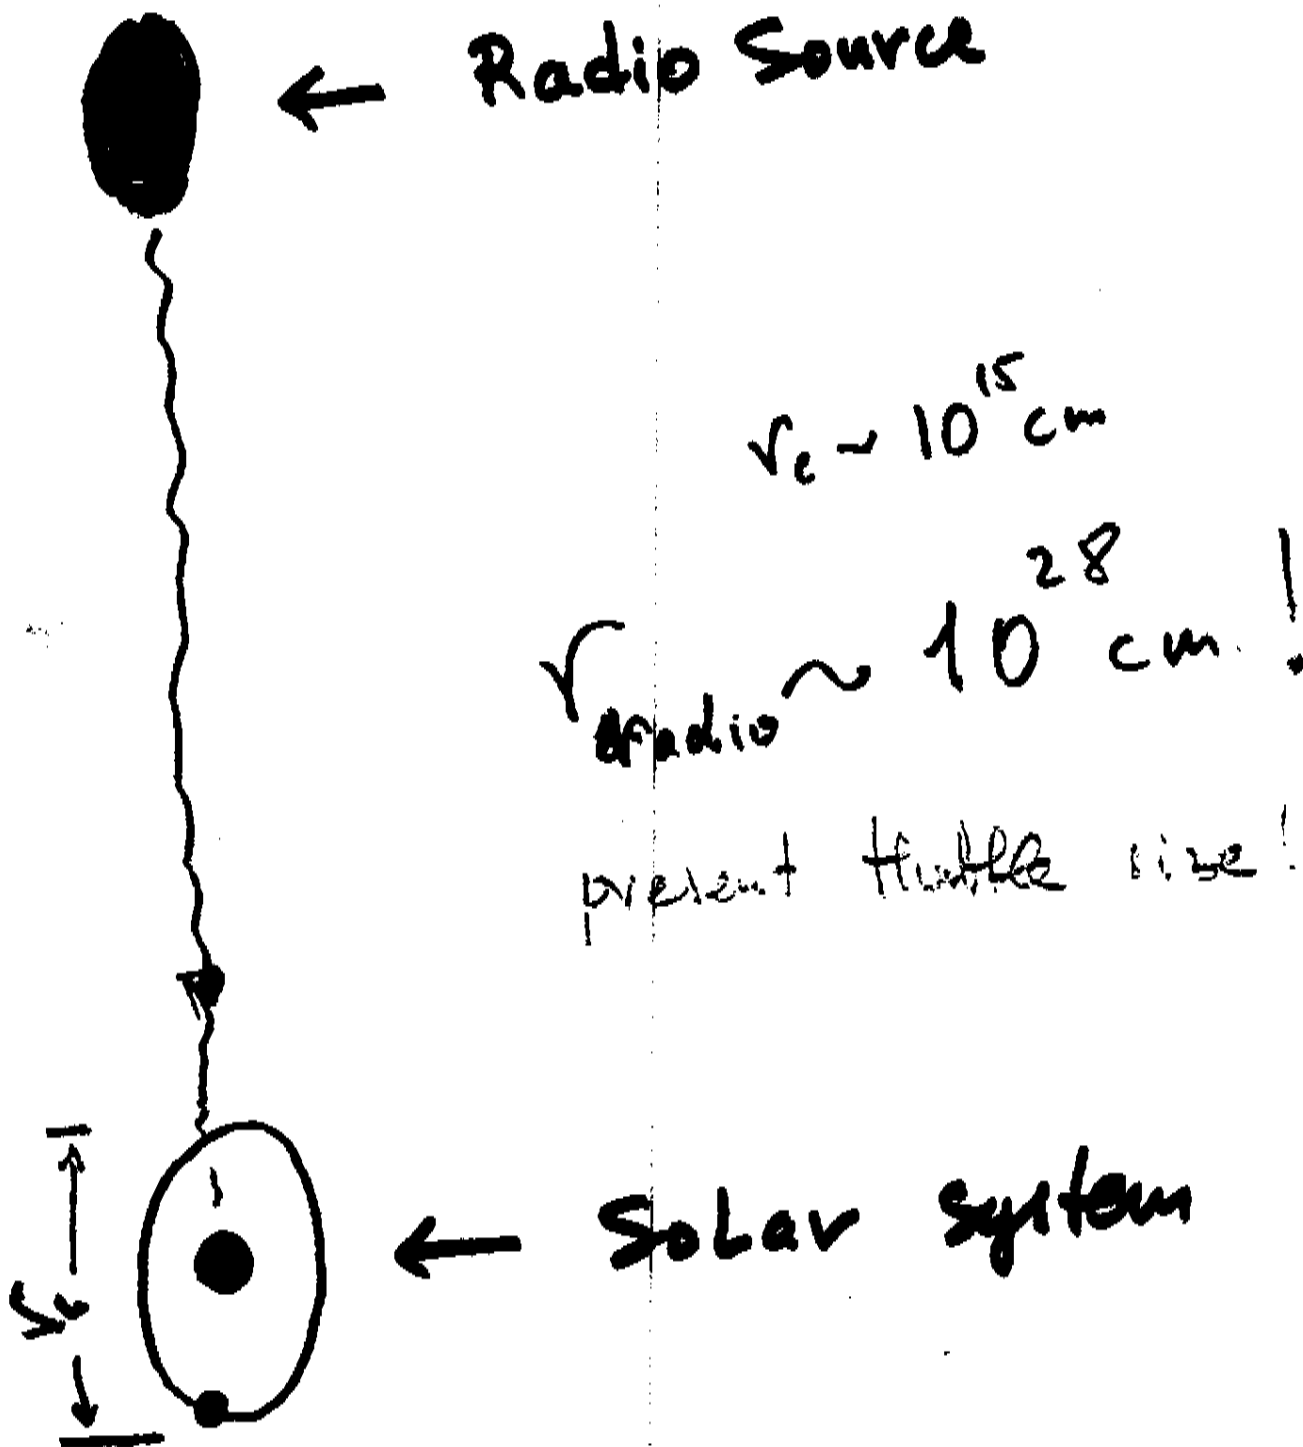 ← Radio Source
r_c ~ 10^15 cm
r_radio ~ 10^28 cm !
present Hubble size!
r_c
← Solar system